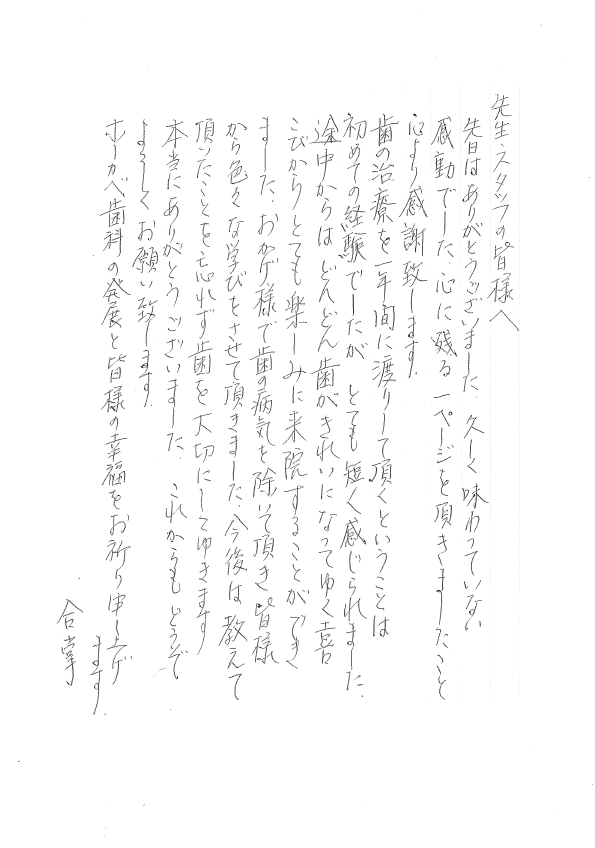 先生・スタッフの皆様へ
先日はありがとうございました。久しく味わっていない
感動でした。心に残る一ページを頂きましたこと
心より感謝致します。
歯の治療を一年間に渡りして頂くということは
初めての経験でしたが とても短く感じられました。
途中からは どんどん歯がきれいになってゆく喜
こびから とても楽しみに来院することができ
ました。おかげ様で歯の病気を除いて頂き 皆様
から色々な学びをさせて頂きました。今後は教えて
頂いたことを忘れず歯を大切にしてゆきます
本当にありがとうございました。これからもどうぞ
よろしくお願い致します。
ホーカベ歯科の発展と皆様の幸福をお祈り申し上げ
ます。
合掌